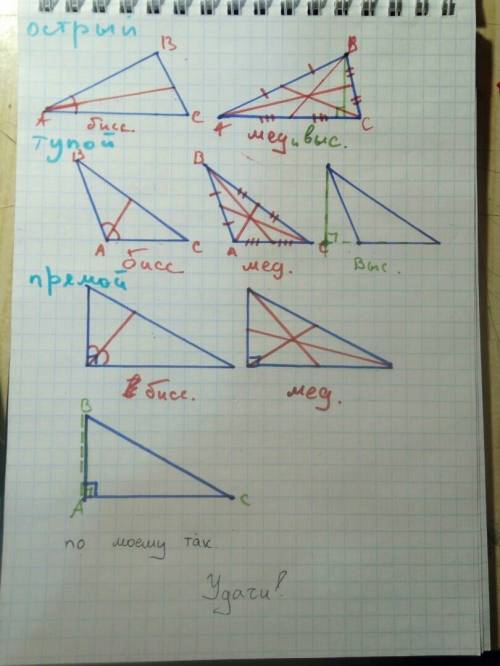 острый
B
B
A
C
A
C
бисс.
мед и выс.
тупой
B
B
A
C
A
C
бисс
мед.
выс.
прямой
бисс.
мед.
B
A
C
по моему так
Удачи!